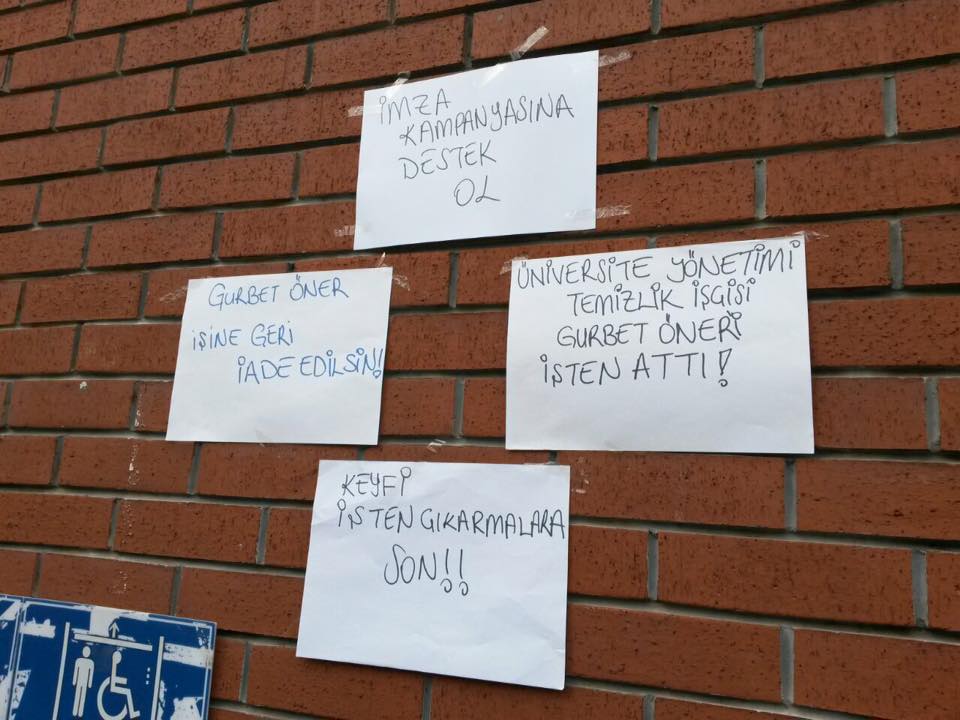 İMZA
KAMPANYASINA
DESTEK
OL
GURBET ÖNER
İŞİNE GERİ
İADE EDİLSİN!
ÜNİVERSİTE YÖNETİMİ
TEMİZLİK İŞGİSİ
GURBET ÖNERİ
İŞTEN ATTI!
KEYFİ
İŞTEN GIKARMALARA
SON!!